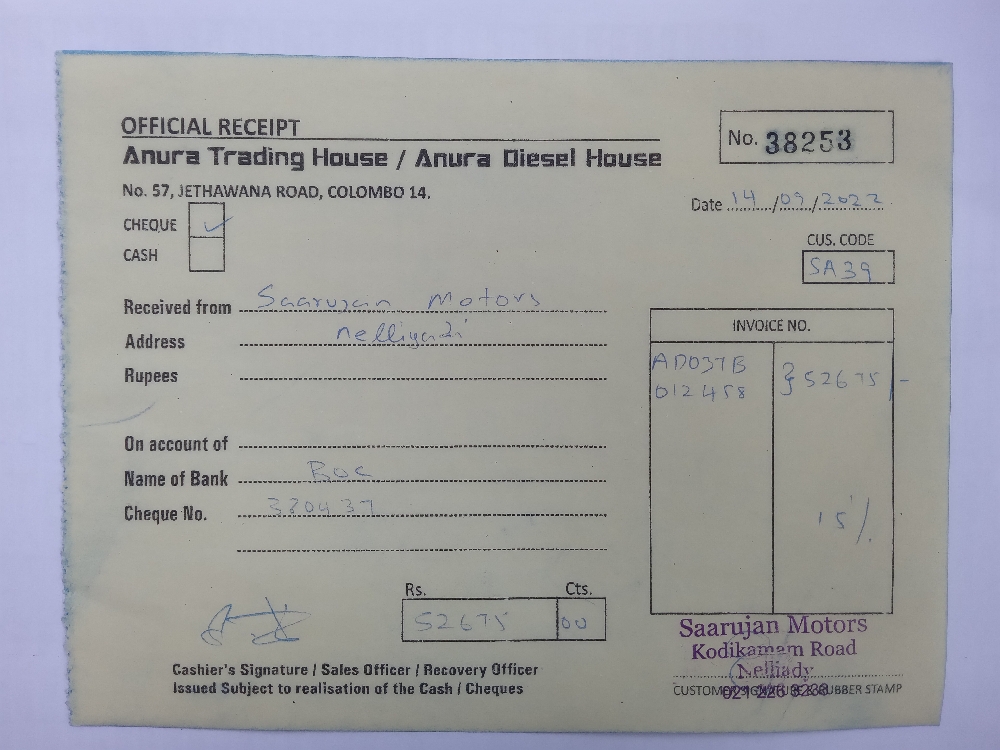 OFFICIAL RECEIPT
Anura Trading House / Anura Diesel House
No. 57, JETHAWANA ROAD, COLOMBO 14.
No. 38253
Date 14/09/2022
CHEQUE ✓
CASH
CUS. CODE
SA39
Received from Saarujan Motors
Address
Rupees
INVOICE NO.
AD037B
012458 } 52675/-
On account of
Name of Bank BOC
Cheque No. 320437
15%
Rs. Cts.
52675 00
Saarujan Motors
Kodikamam Road
Nelliady
Cashier's Signature / Sales Officer / Recovery Officer
Issued Subject to realisation of the Cash / Cheques
CUSTOMER SIGNATURE & RUBBER STAMP